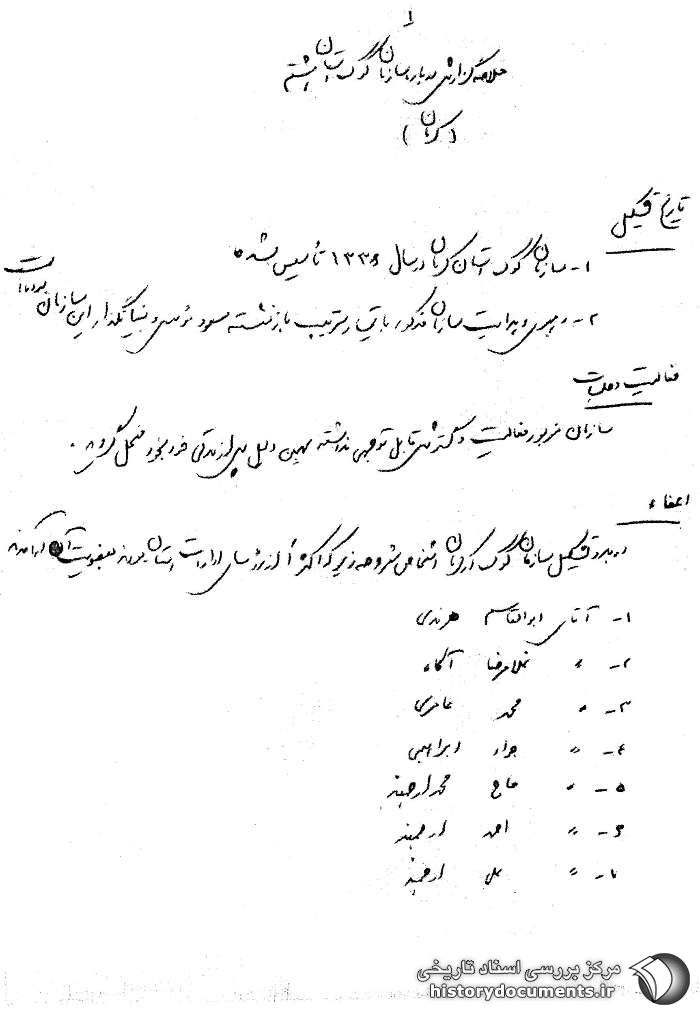 ۱
خلاصه گزارش درباره سازمان کوک استان هشتم
(کرمان)
تاریخ تشکیل
۱- سازمان کوک استان کرمان در سال ۱۳۳۶ تأسیس شده
۲- ریاست سازمان مذکور با تیمسار سرتیپ بازنشسته مسعود و بنیانگذار این سازمان بوده است
فعالیت و عملیات
سازمان مزبور فعالیت و گسترش قابل توجهی نداشته بهمین دلیل پس از مدتی خود بخود منحل گردید.
اعضاء
در بدو تشکیل سازمان کوک کرمان اشخاص مشروحه زیر که اکثراً از رؤسای ادارات استان بودند بعضویت آن درآمدند
۱- آقای ابوالقاسم هرندی
۲- " غلامرضا آگاه
۳- " محمد عامری
۴- " جواد ابراهیمی
۵- " حاج محمد ارجمند
۶- " احمد ارجمند
۷- " علی ارجمند
مرکز بررسی اسناد تاریخی
historydocuments.ir